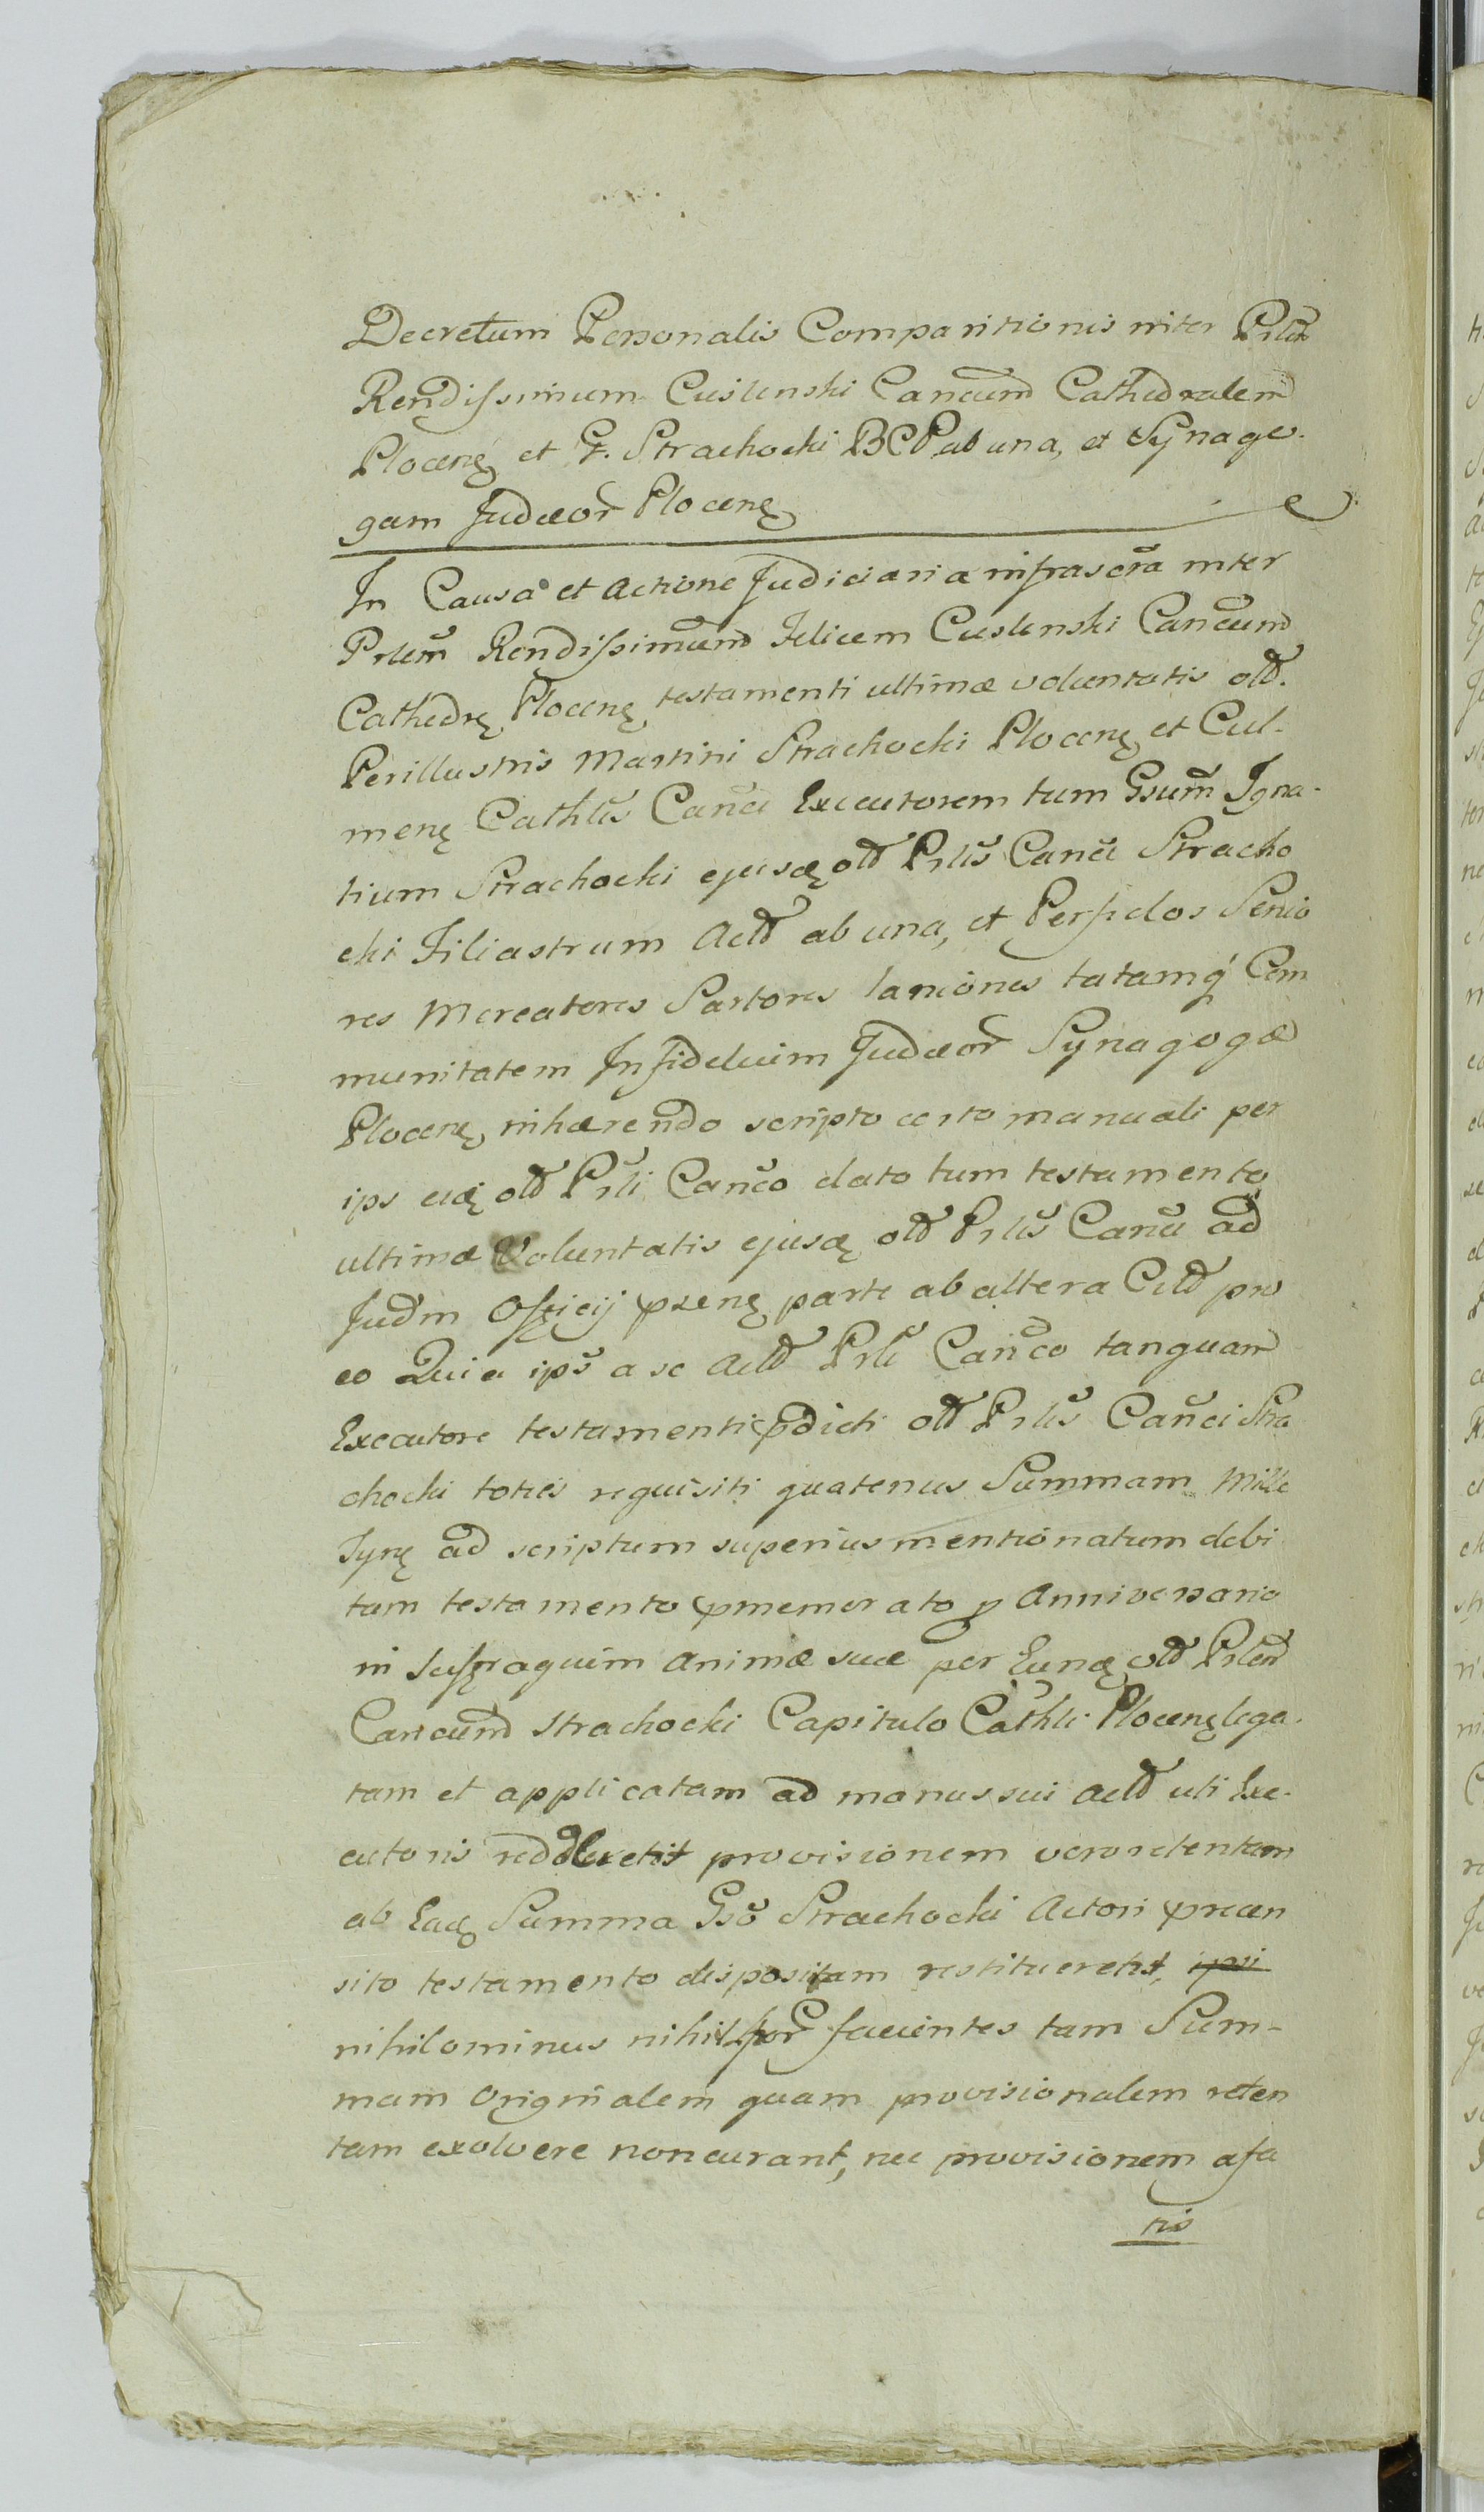 Decretum Personalis Comparitionis inter Prlem
Rendissimum Cieslenski Cancum Cathedralem
Plocenę et G. Strachocki BCP ab una, et Synago-
gam Judæor Plocenę
In Causa et Actione Judiciaria infrascra inter
Prlem Rendissimum Felicem Cieslenski Cancum
Cathedrę Plocenę testamenti ultimæ voluntatis olb.
Perillustris Martini Strachocki Plocenę et Cul-
menę Cathlis Canci Executorem tum Gsum Igna-
tium Strachocki ejusdę olb Prlis Canci Stracho
cki Filiastrum Actb ab una, et Perfidos Senio
res Mercatores Sartores laniones totamq Com
munitatem Infidelium Judæor Synagogæ
Plocenę inhærendo scripto certo manuali per
ips eidę olb Prli Canco dato tum testamento
ultimæ Voluntatis ejusdę olb Prlis Canci ad
Judm Officij præsenę parte ab altera Citb pro
eo Quia ips a se Actb Prli Canco tanquam
Executore testamenti pdicti olb Prlis Canci Stra
chocki toties requisiti quatenus Summam Mille
Tynę ad scriptum superius mentionatum debi
tam testamento pmemorato p Anniversario
in suffragium Animæ suæ per Eundę olb Prlem
Cancum Strachocki Capitulo Cathli Plocenę lega-
tam et applicatam ad manus sui Actb uti Exe-
cutoris redderent provisionem vero retentam
ab Eadę Summa Gso Strachocki Actori præcen
sito testamento dispositam restituerent, ipsi
nihilominus nihil hor facientes tam Sum-
mam Originalem quam provisionalem reten
tam exolvere non curant, nec provisionem afa
tis